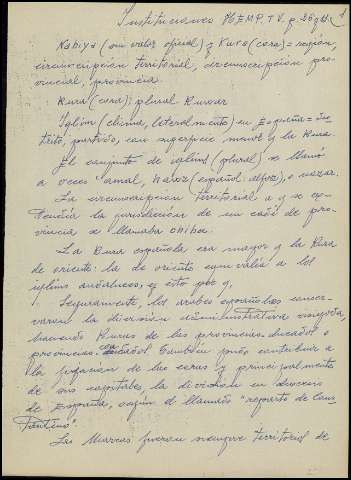 Instituciones HEMP. T.V. p. 26 1
Nahiya (sin valor oficial) y Kura (cora) = región,
circunscripción territorial, circunscripción pro-
vincial, provincia.
Kura (cora); plural Kuwar
Iqlim (clima, literalmente) en España = dis-
trito, partido, con superficie menor y la Kura
El conjunto de iqlims (plural) se llamó
a veces amal, hawz (español alfoz), o nazar.
La circunscripción territorial a y se ex-
tendía la jurisdicción de un cadi de pro-
vincia se llamaba chiha.
La Kura española era mayor y la Kura
de oriente: la de oriente equivalía a los
iqlims andaluces, y esto por q.
Seguramente, los árabes españoles conser-
varon la división administrativa visigoda
haciendo Kuras de las provincias-ducados o
provincias-condados. También pudo contribuir a
la formación de las coras y principalmente
de sus capitales, la división en diócesis
de España, según el llamado "reparto de Cons-
tantino".
Las Marcas fueron siempre territorial de